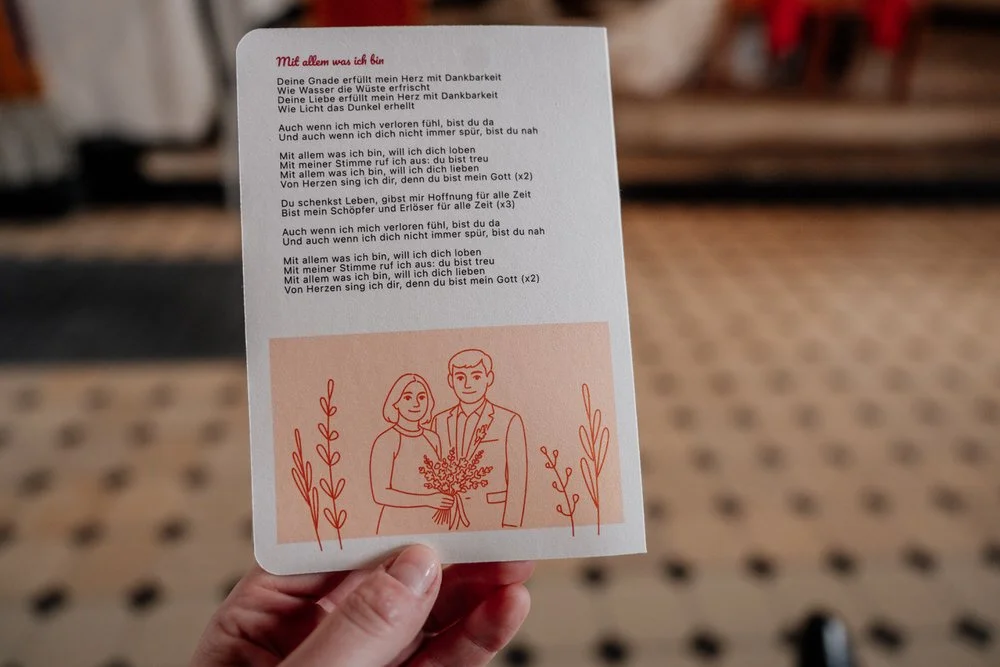 Mit allem was ich bin
Deine Gnade erfüllt mein Herz mit Dankbarkeit
Wie Wasser die Wüste erfrischt
Deine Liebe erfüllt mein Herz mit Dankbarkeit
Wie Licht das Dunkel erhellt
Auch wenn ich mich verloren fühl, bist du da
Und auch wenn ich dich nicht immer spür, bist du nah
Mit allem was ich bin, will ich dich loben
Mit meiner Stimme ruf ich aus: du bist treu
Mit allem was ich bin, will ich dich lieben
Von Herzen sing ich dir, denn du bist mein Gott (x2)
Du schenkst Leben, gibst mir Hoffnung für alle Zeit
Bist mein Schöpfer und Erlöser für alle Zeit (x3)
Auch wenn ich mich verloren fühl, bist du da
Und auch wenn ich dich nicht immer spür, bist du nah
Mit allem was ich bin, will ich dich loben
Mit meiner Stimme ruf ich aus: du bist treu
Mit allem was ich bin, will ich dich lieben
Von Herzen sing ich dir, denn du bist mein Gott (x2)